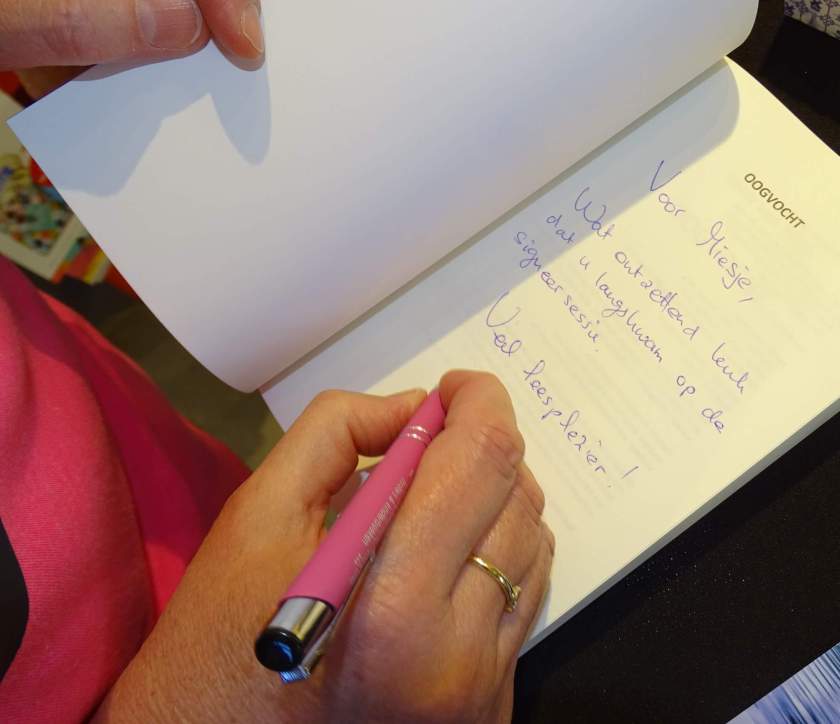 OOGVOCHT
Voor Miesje,
Wat ontzettend leuk
dat u langskwam op de
signeersessie.
Veel leesplezier!